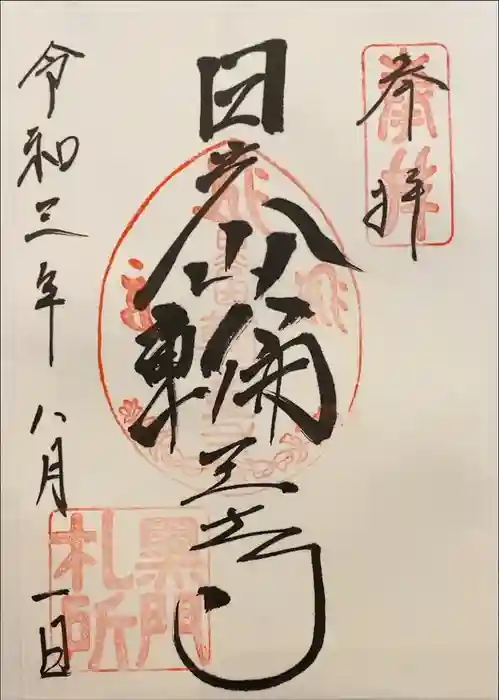 奉拝
日光山輪王寺
令和三年八月一日
奉拝
黒門
札所